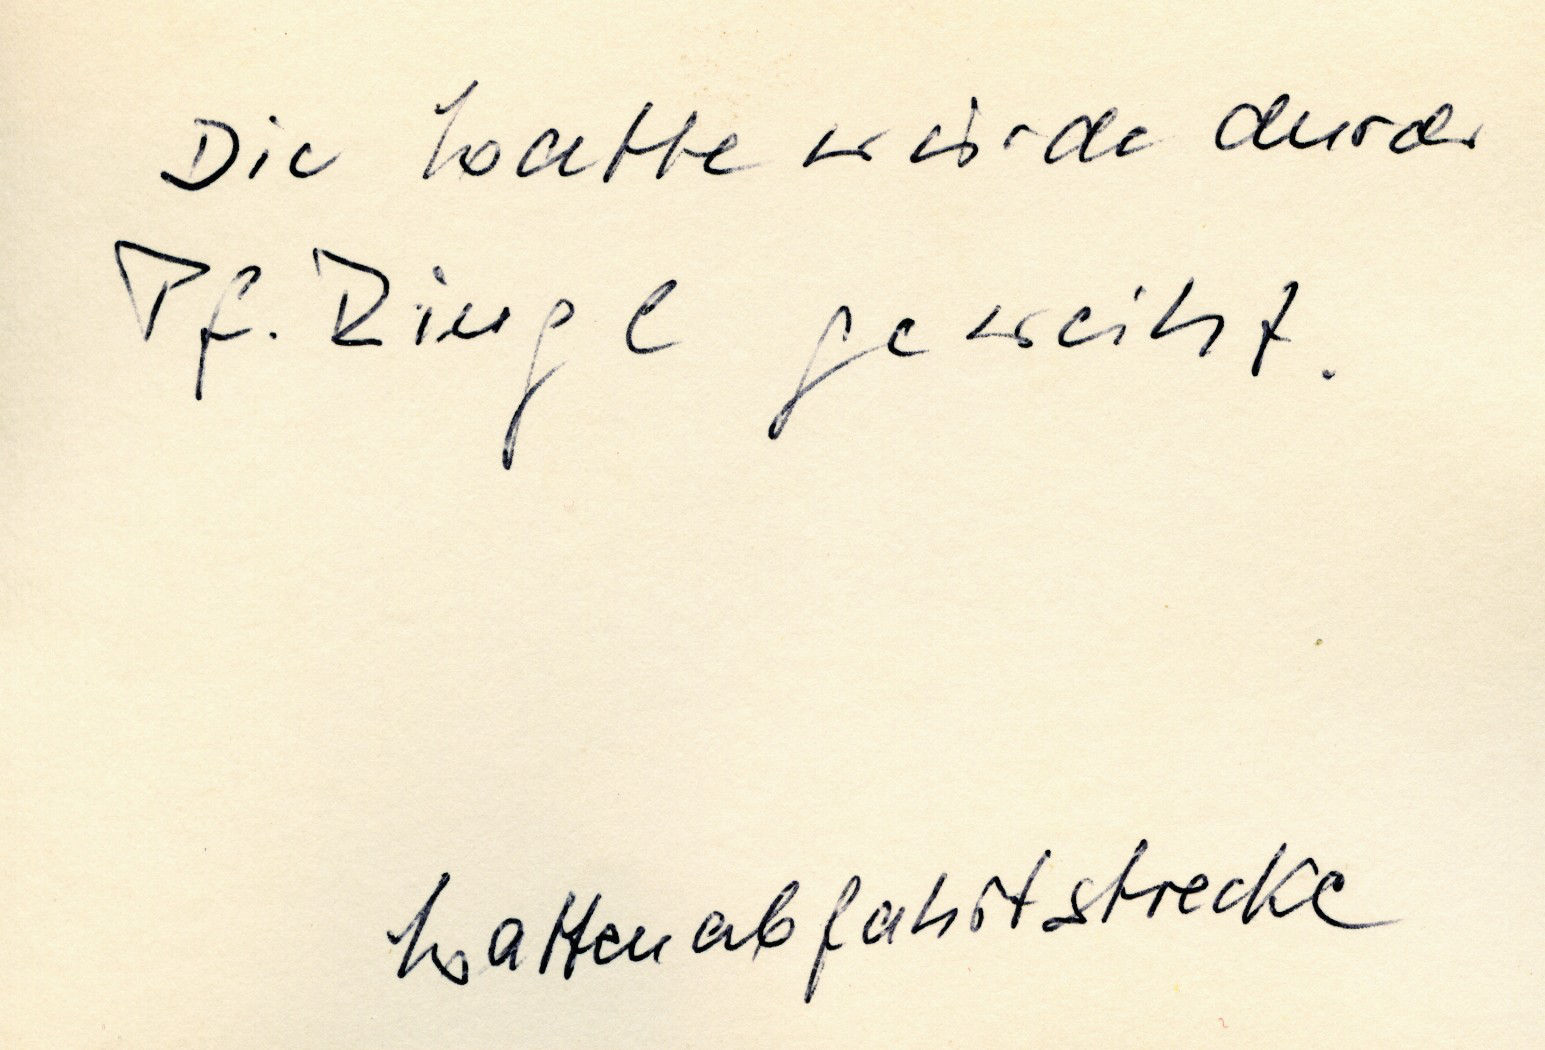 Die Watte wurde durch
Pf. Ringl geweiht.
Wattenabfahrtstrecke